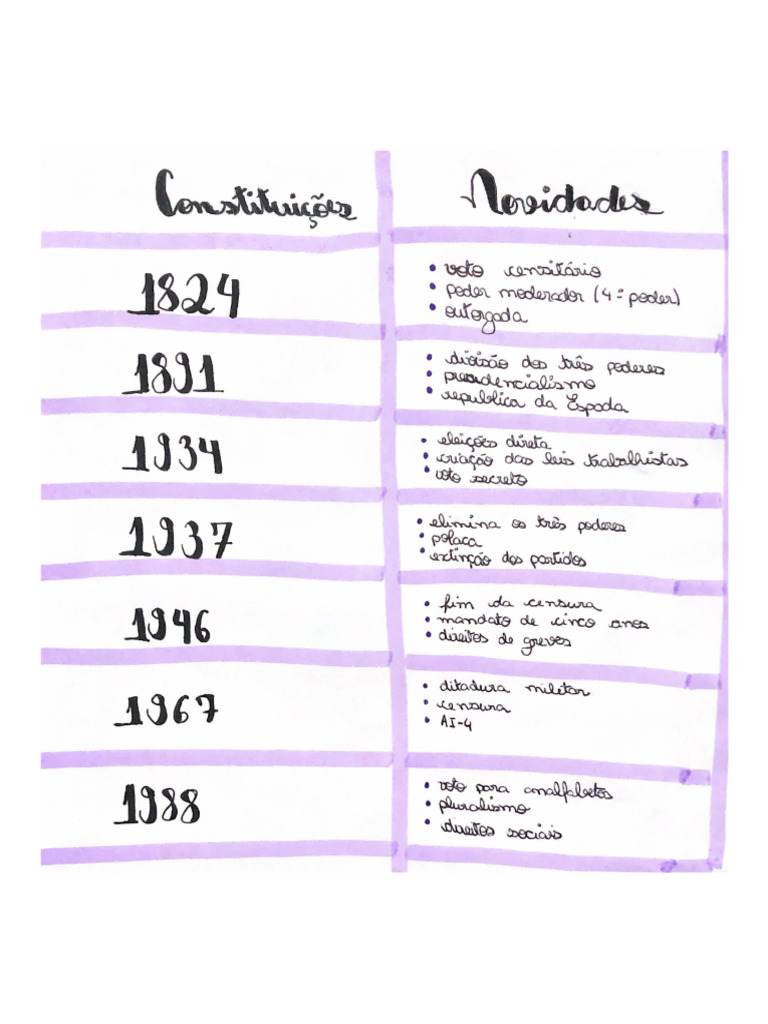 Constituições Novidades
1824
• voto censitário
• poder moderador (4º poder)
• outorgada
1891
• divisão dos três poderes
• presidencialismo
• republica da Espada
1934
• eleições direta
• criação das leis trabalhistas
• voto secreto
1937
• elimina os três poderes
• polaca
• extinção dos partidos
1946
• fim da censura
• mandato de cinco anos
• direitos de greves
1967
• ditadura militar
• censura
• AI-4
1988
• voto para analfabetos
• pluralismo
• direitos sociais